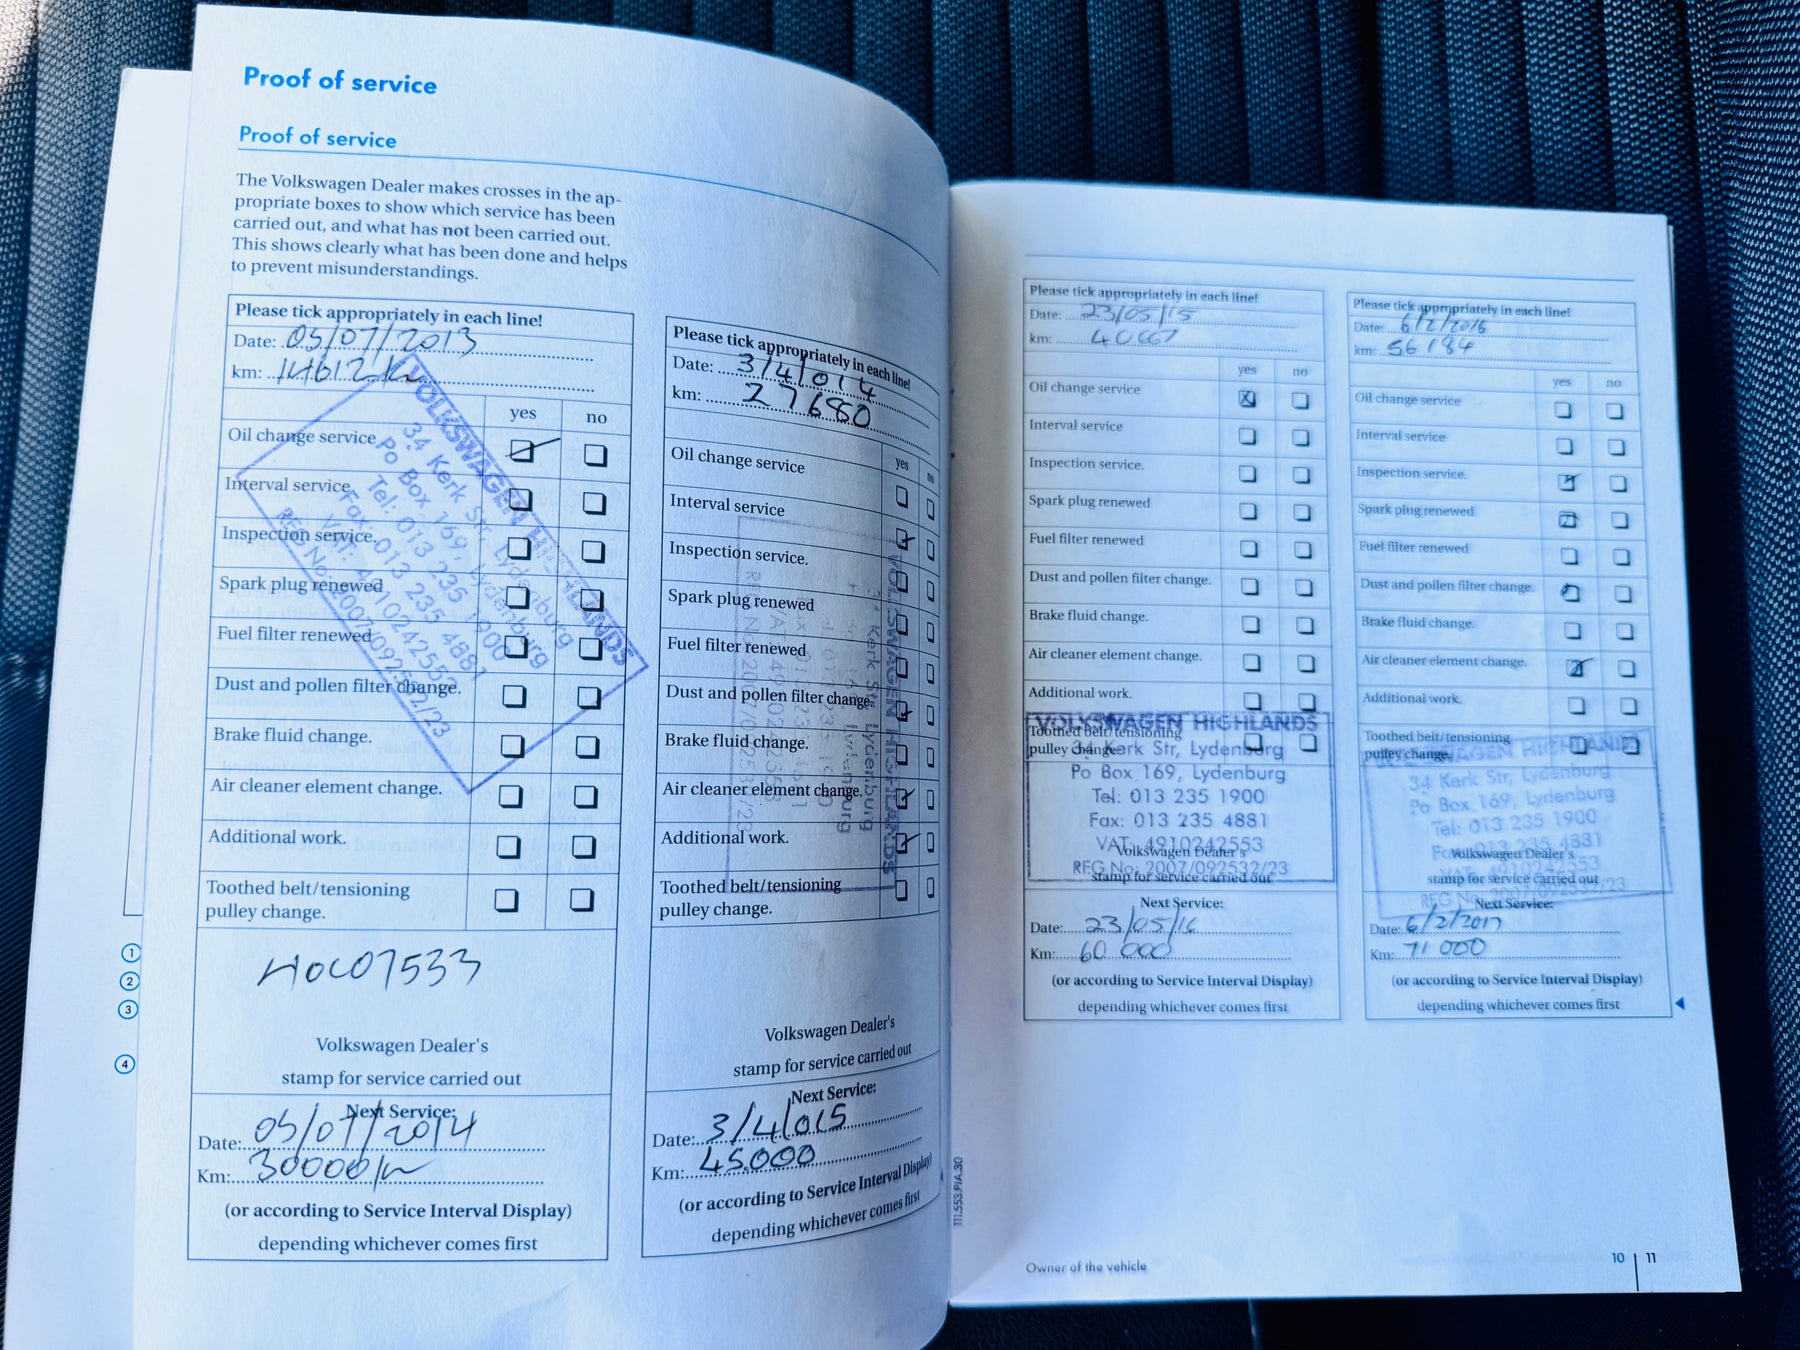 Proof of service
Proof of service
The Volkswagen Dealer makes crosses in the ap-
propriate boxes to show which service has been
carried out, and what has not been carried out.
This shows clearly what has been done and helps
to prevent misunderstandings.
Please tick appropriately in each line!
Date: 05/07/2013
km: 14612 km
yes no
Oil change service
Interval service
Inspection service.
Spark plug renewed
Fuel filter renewed
Dust and pollen filter change.
Brake fluid change.
Air cleaner element change.
Additional work.
Toothed belt/tensioning
pulley change.
VOLKSWAGEN HIGHLANDS
34 Kerk Str, Lydenburg
Po Box 169, Lydenburg
Tel: 013 235 1900
Fax: 013 235 4881
VAT: 4910242553
REG No: 2007/092532/23
Volkswagen Dealer's
stamp for service carried out
Next Service:
Date: 05/07/2014
Km: 30000 km
(or according to Service Interval Display)
depending whichever comes first
Please tick appropriately in each line!
Date: 3/4/014
km: 27680
yes no
Oil change service
Interval service
Inspection service.
Spark plug renewed
Fuel filter renewed
Dust and pollen filter change.
Brake fluid change.
Air cleaner element change.
Additional work.
Toothed belt/tensioning
pulley change.
VOLKSWAGEN HIGHLANDS
34 Kerk Str, Lydenburg
Volkswagen Dealer's
stamp for service carried out
Next Service:
Date: 3/4/015
Km: 45.000
(or according to Service Interval Display)
depending whichever comes first
111.553.PIA.30
Please tick appropriately in each line!
Date: 23/05/15
km:
yes no
Oil change service
Interval service
Inspection service.
Spark plug renewed
Fuel filter renewed
Dust and pollen filter change.
Brake fluid change.
Air cleaner element change.
Additional work.
Toothed belt/tensioning
pulley change.
VOLKSWAGEN HIGHLANDS
34 Kerk Str, Lydenburg
Po Box 169, Lydenburg
Tel: 013 235 1900
Fax: 013 235 4881
VAT: 4910242553
REG No: 2007/092532/23
Volkswagen Dealer's
stamp for service carried out
Next Service:
Date: 23/05/16
Km: 60 000
(or according to Service Interval Display)
depending whichever comes first
Please tick appropriately in each line!
Date: 6/2/2016
km: 56184
yes no
Oil change service
Interval service
Inspection service.
Spark plug renewed
Fuel filter renewed
Dust and pollen filter change.
Brake fluid change.
Air cleaner element change.
Additional work.
Toothed belt/tensioning
pulley change.
VOLKSWAGEN HIGHLANDS
34 Kerk Str, Lydenburg
Po Box 169, Lydenburg
Tel: 013 235 1900
Fax: 013 235 4881
Volkswagen Dealer's
stamp for service carried out
Next Service:
Date: 6/2/2017
Km: 71 000
(or according to Service Interval Display)
depending whichever comes first
Owner of the vehicle
10 | 11
1
2
3
4